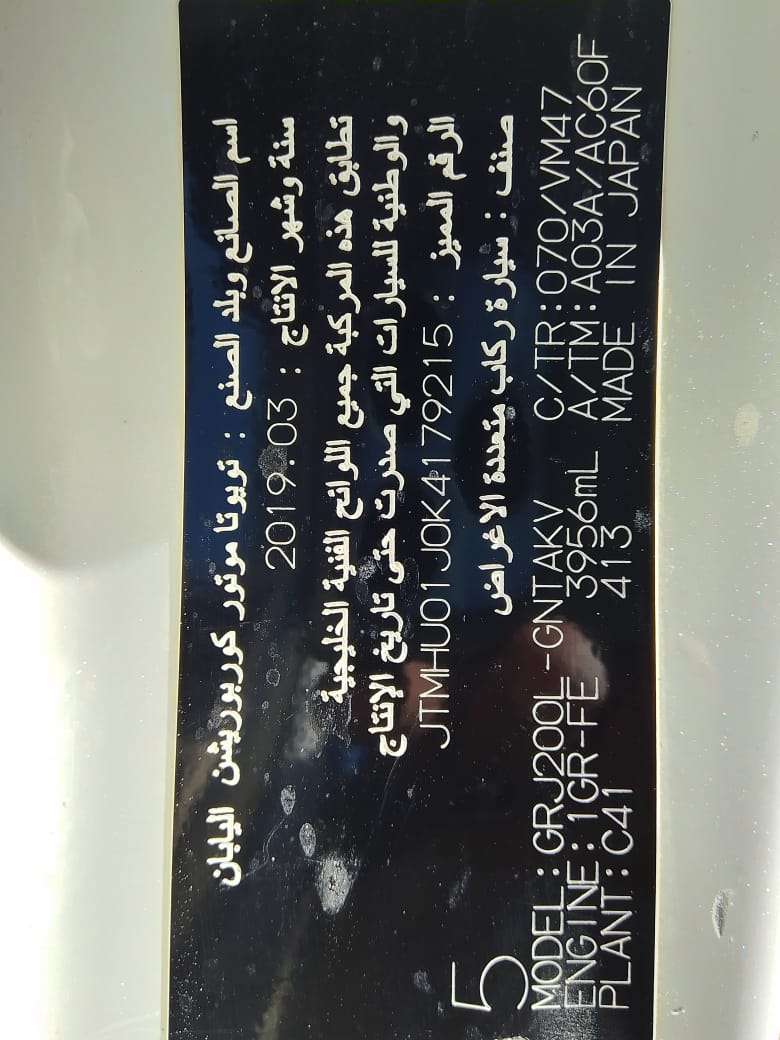 اسم الصانع وبلد الصنع : تويوتا موتور كوربوريشن اليابان
سنة وشهر الانتاج : 2019.03
تطابق هذه المركبة جميع اللوائح الفنية الخليجية
والوطنية للسيارات التي صدرت حتى تاريخ الإنتاج
الرقم المميز : JTMHU01J0K4179215
صنف : سيارة ركاب متعددة الاغراض
5
MODEL:GRJ200L-GNTAKV C/TR:070/VM47
ENGINE:1GR-FE 3956mL A/TM:A03A/AC60F
PLANT:C41 413 MADE IN JAPAN